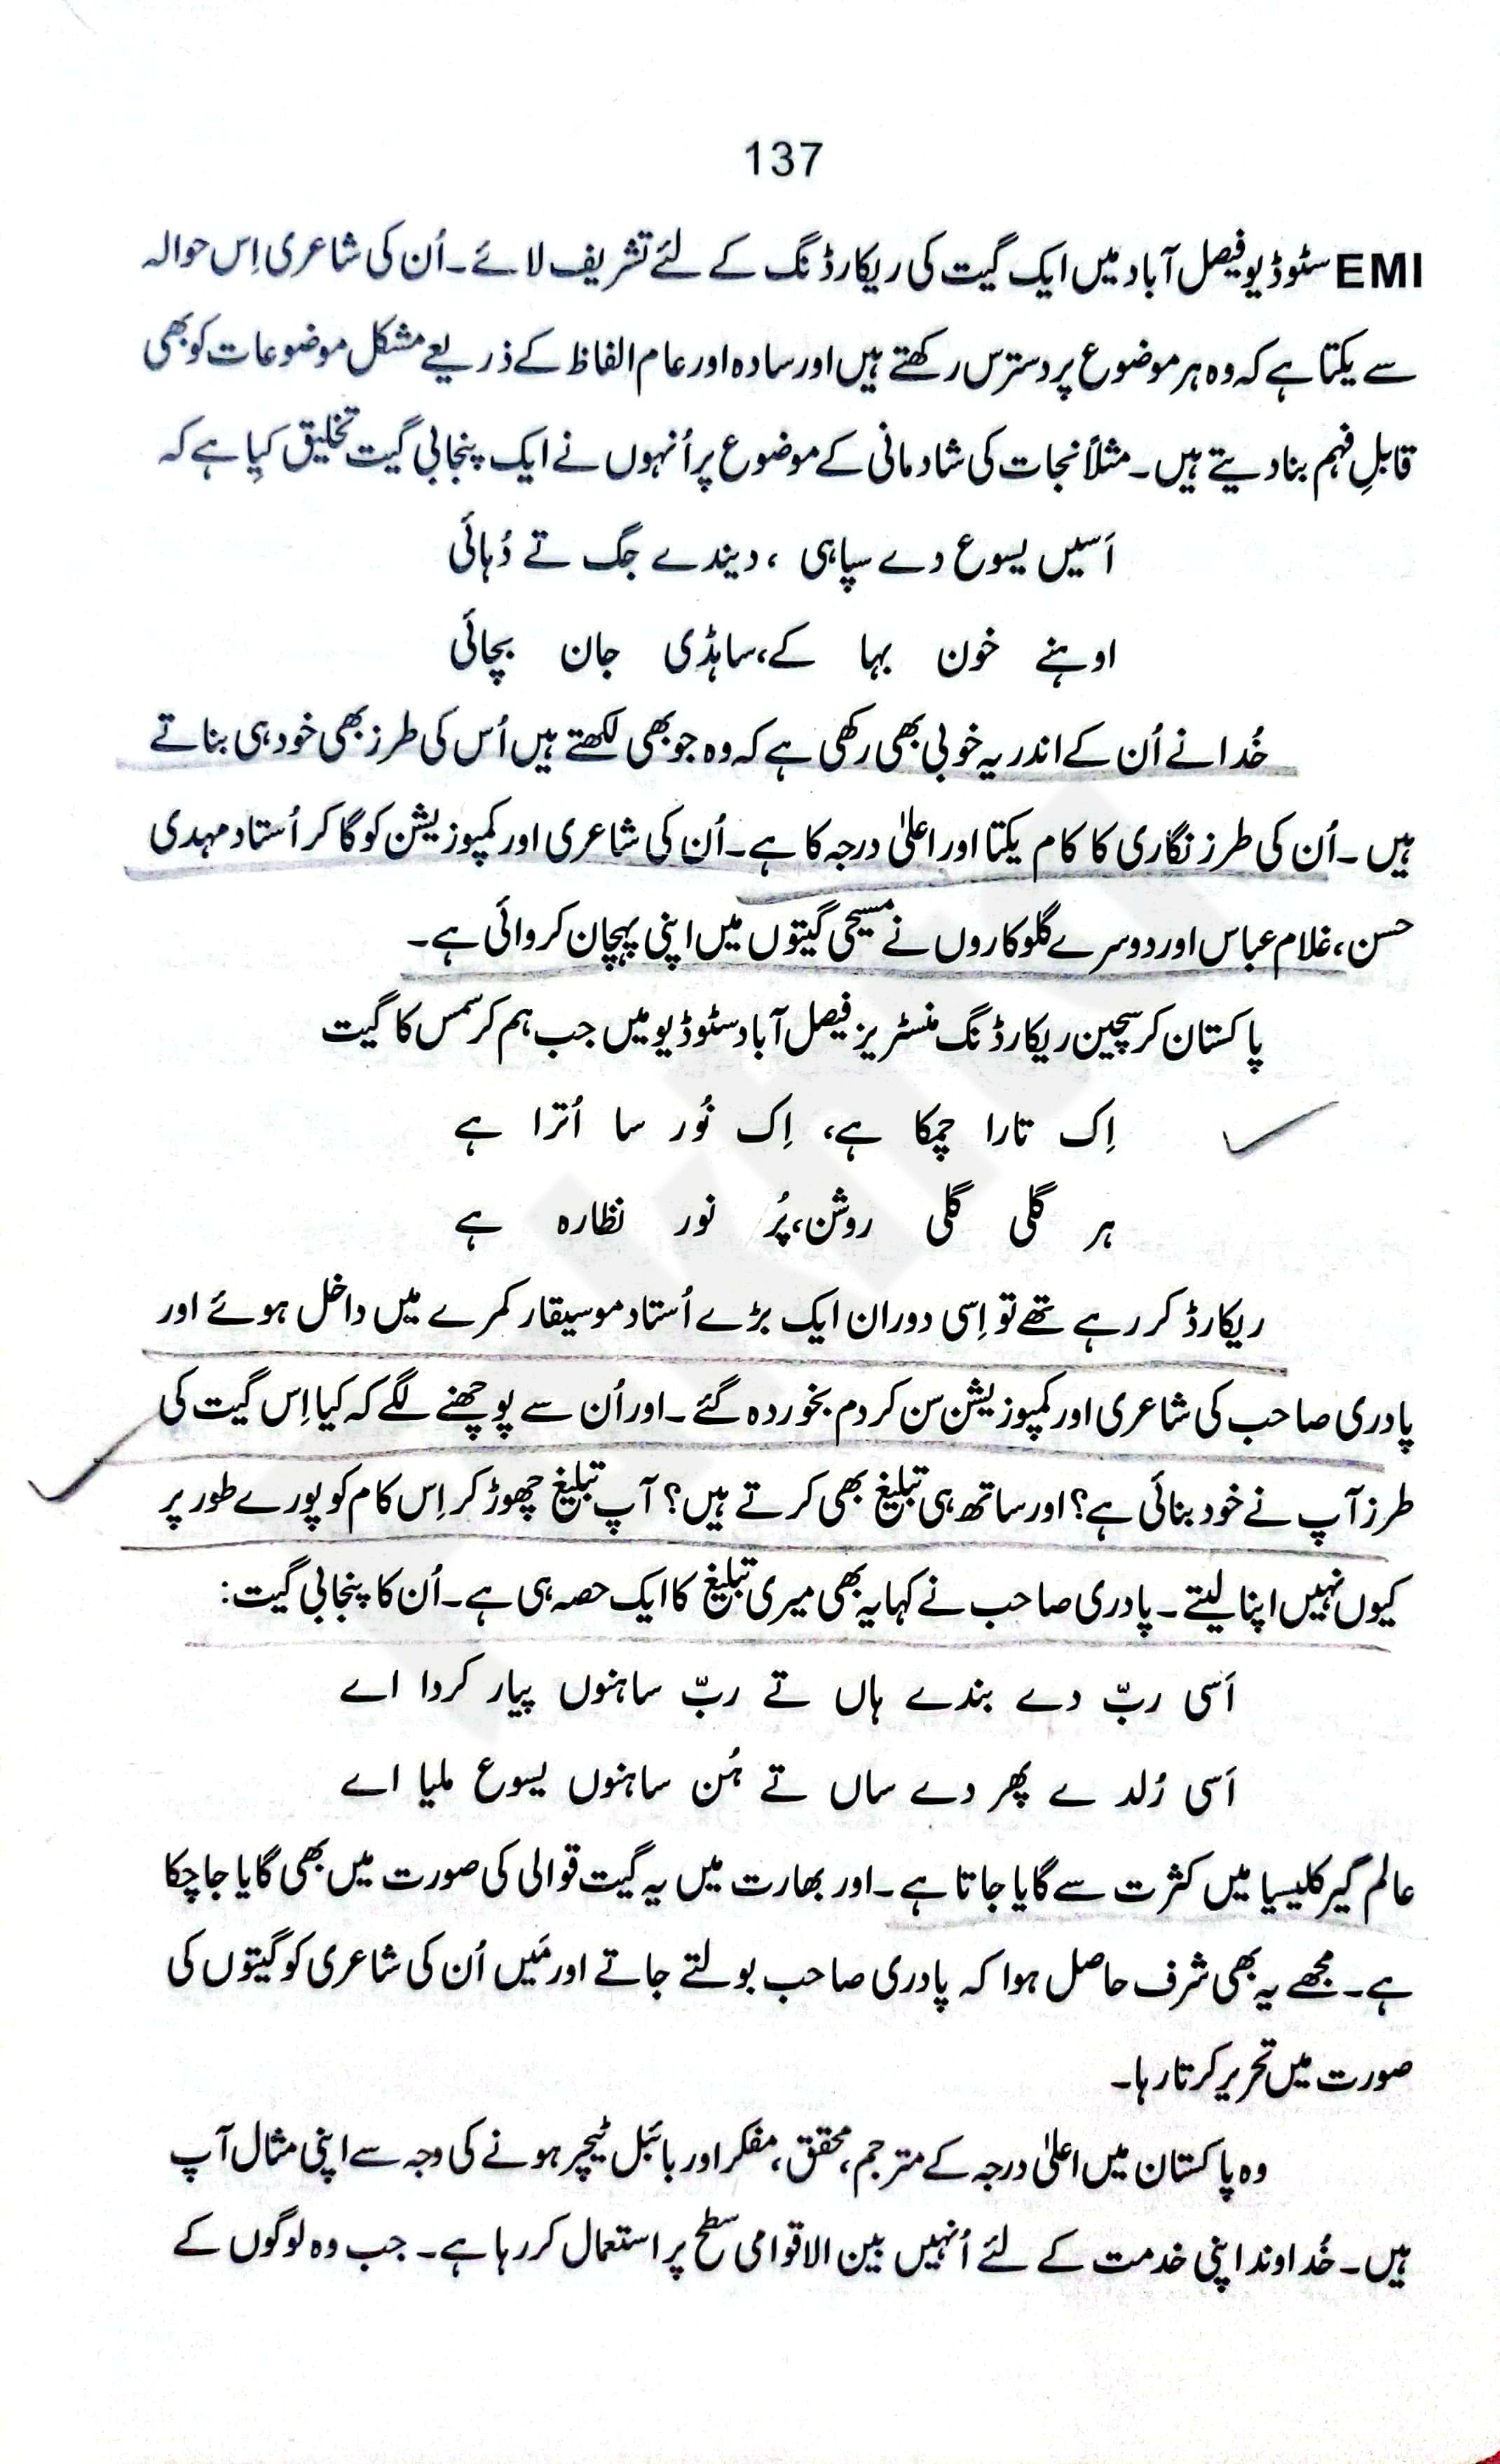 137
EMI سٹوڈیو فیصل آباد میں ایک گیت کی ریکارڈنگ کے لئے تشریف لائے۔ اُن کی شاعری اِس حوالہ
سے یکتا ہے کہ وہ ہر موضوع پر دسترس رکھتے ہیں اور سادہ اور عام الفاظ کے ذریعے مشکل موضوعات کو بھی
قابلِ فہم بنا دیتے ہیں۔ مثلاً نجات کی شادمانی کے موضوع پر اُنہوں نے ایک پنجابی گیت تخلیق کیِا ہے کہ
اَسیں یسوع دے سپاہی ، دیندے جگ تے دُہائی
اوہنے خون بہا کے، ساہڈی جان بچائی
خُدا نے اُن کے اندر یہ خوبی بھی رکھی ہے کہ وہ جو بھی لکھتے ہیں اُس کی طرز بھی خود ہی بناتے
ہیں۔ اُن کی طرز نگاری کا کام یکتا اور اعلیٰ درجہ کا ہے۔ اُن کی شاعری اور کمپوزیشن کو گا کر اُستاد مہدی
حسن، غلام عباس اور دوسرے گلوکاروں نے مسیحی گیتوں میں اپنی پہچان کروائی ہے۔
پاکستان کرسچین ریکارڈنگ منسٹریز فیصل آباد سٹوڈیو میں جب ہم کرسمس کا گیت
اِک تارا چمکا ہے، اِک نُور سا اُترا ہے
ہر گلی گلی روشن، پُر نور نظارہ ہے
ریکارڈ کر رہے تھے تو اِسی دوران ایک بڑے اُستاد موسیقار کمرے میں داخل ہوئے اور
پادری صاحب کی شاعری اور کمپوزیشن سن کر دم بخوردہ گئے۔ اور اُن سے پوچھنے لگے کہ کیا اِس گیت کی
طرز آپ نے خود بنائی ہے؟ اور ساتھ ہی تبلیغ بھی کرتے ہیں؟ آپ تبلیغ چھوڑ کر اِس کام کو پورے طور پر
کیوں نہیں اپنا لیتے۔ پادری صاحب نے کہا یہ بھی میری تبلیغ کا ایک حصہ ہی ہے۔ اُن کا پنجابی گیت:
اَسی ربّ دے بندے ہاں تے ربّ ساہنوں پیار کردا اے
اَسی رُلد ے پھر دے ساں تے ہُن ساہنوں یسوع ملیا اے
عالم گیر کلیسیا میں کثرت سے گایا جاتا ہے۔ اور بھارت میں یہ گیت قوالی کی صورت میں بھی گایا جا چکا
ہے۔ مجھے یہ بھی شرف حاصل ہوا کہ پادری صاحب بولتے جاتے اور مَیں اُن کی شاعری کو گیتوں کی
صورت میں تحریر کرتا رہا۔
وہ پاکستان میں اعلیٰ درجہ کے مترجم، محقق، مفکر اور بائبل ٹیچر ہونے کی وجہ سے اپنی مثال آپ
ہیں۔ خُداوند اپنی خدمت کے لئے اُنہیں بین الاقوامی سطح پر استعمال کر رہا ہے۔ جب وہ لوگوں کے